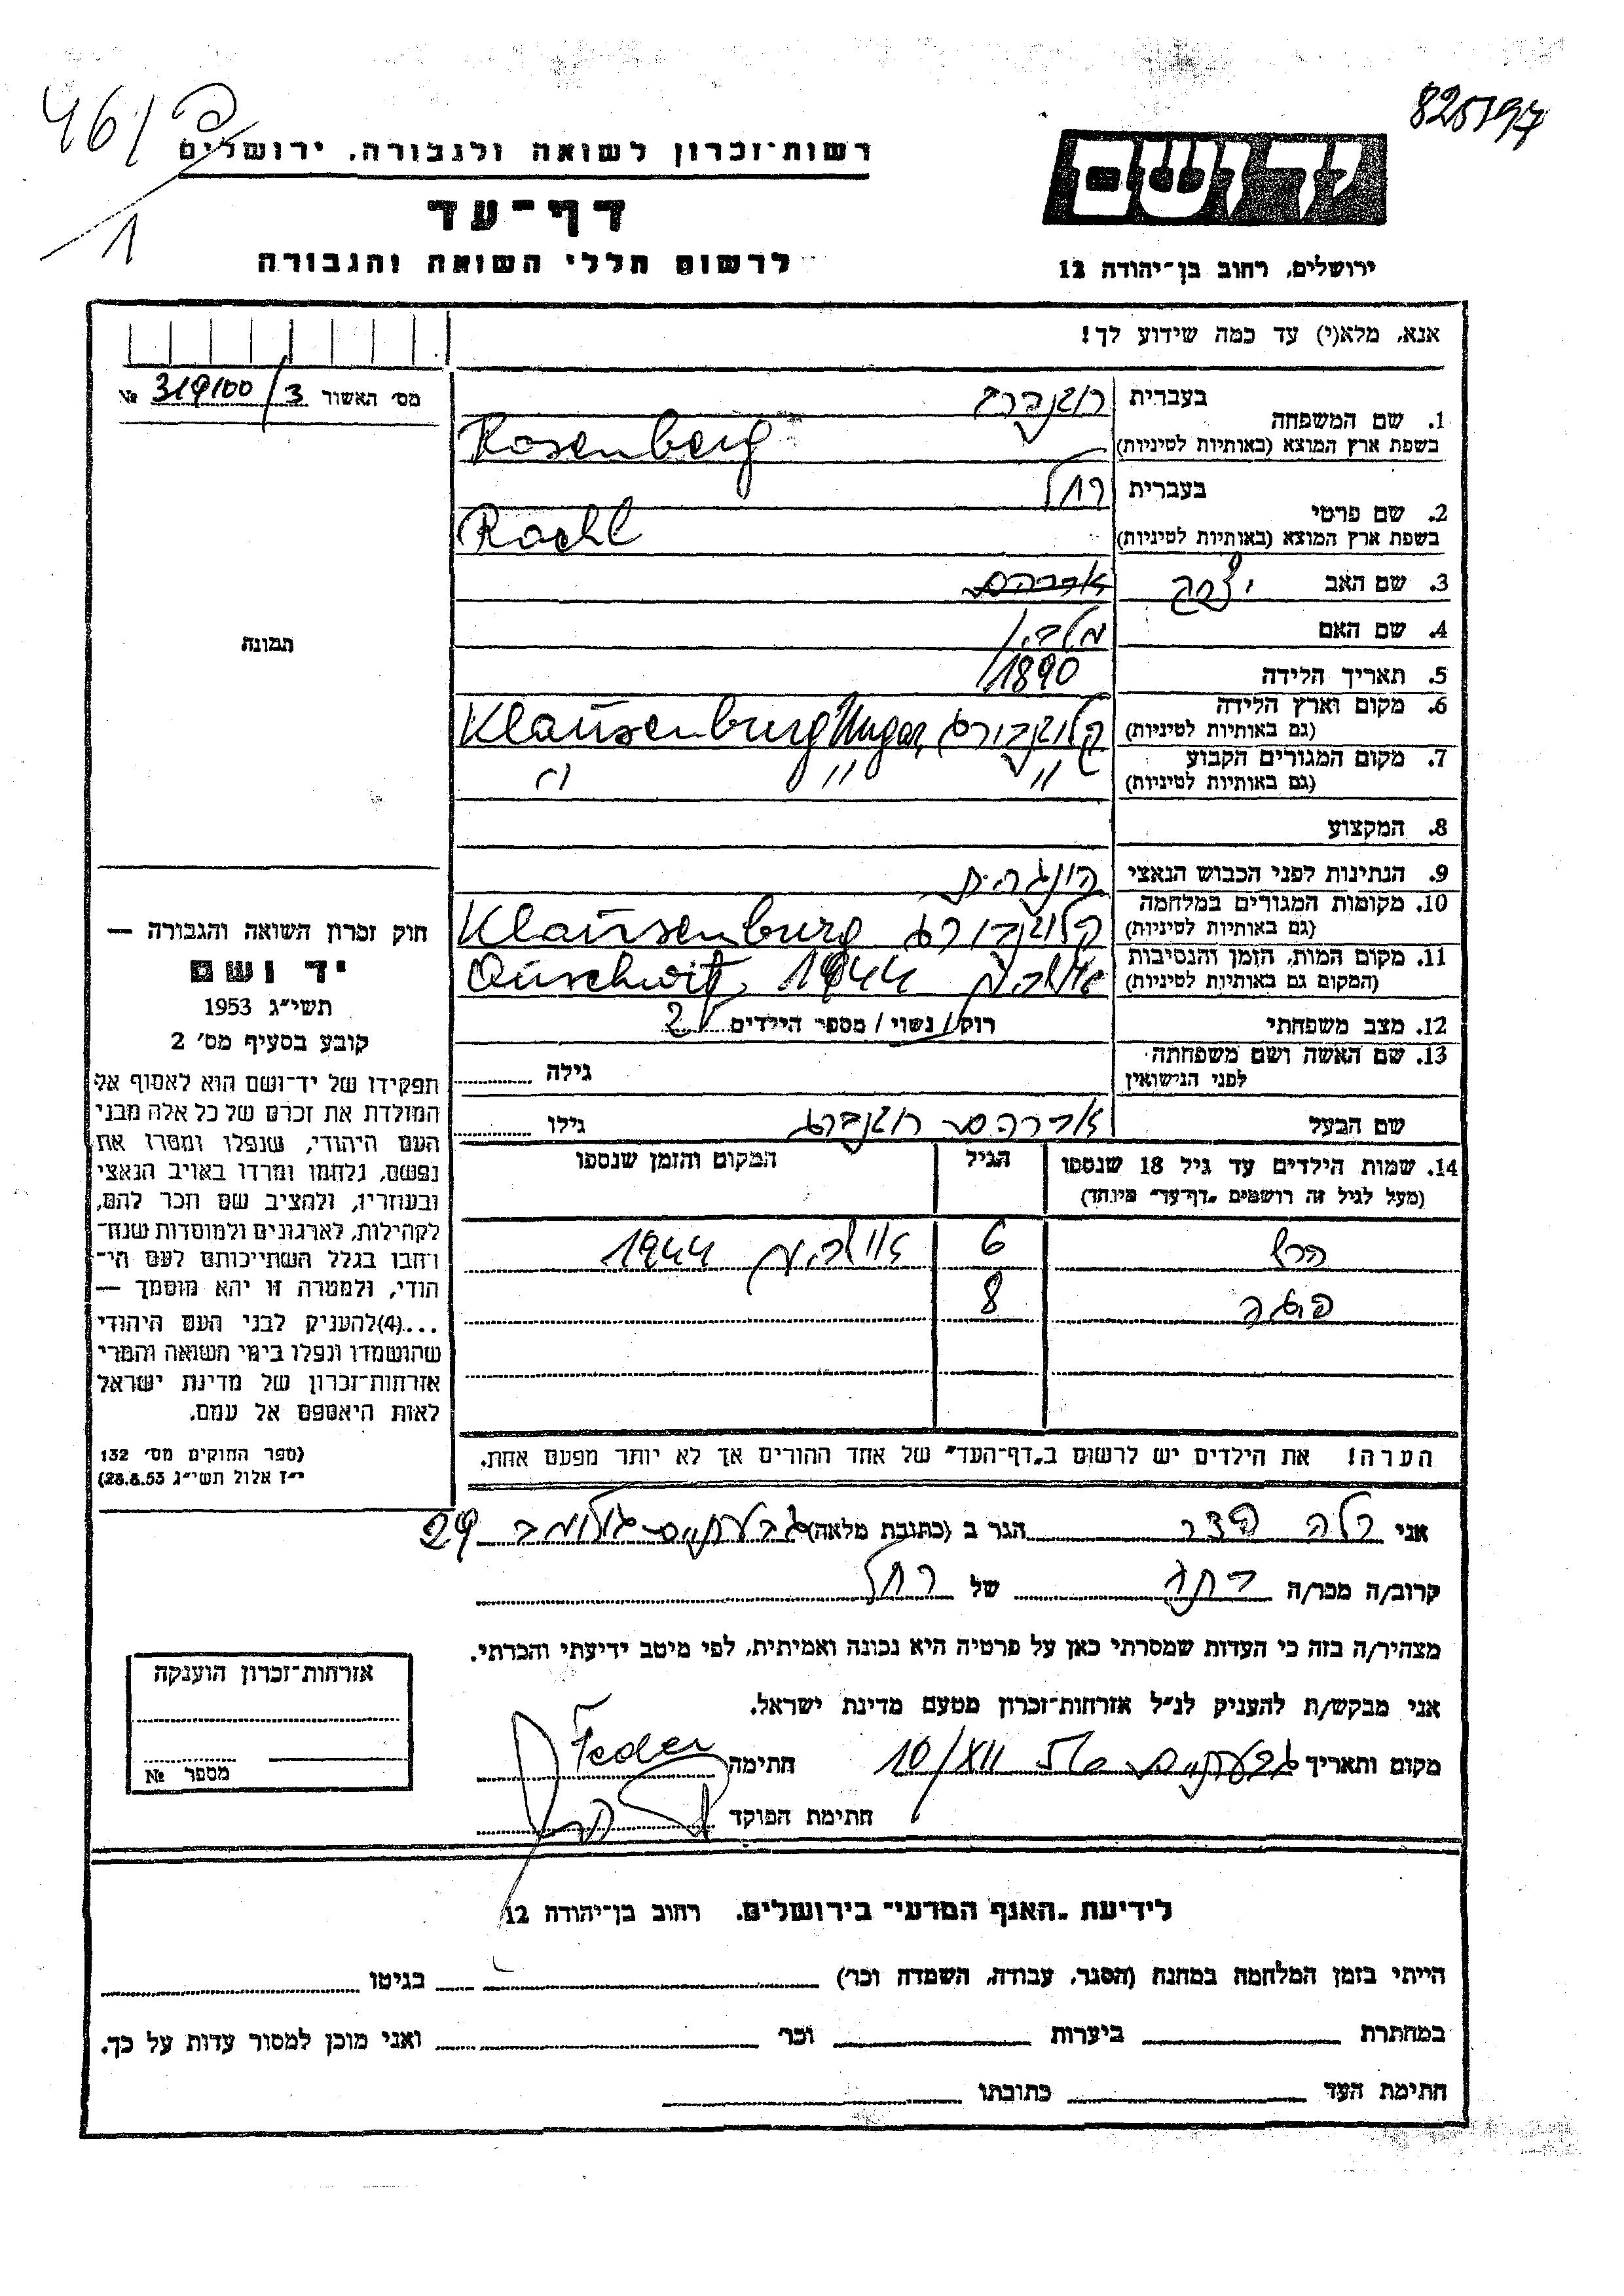 461
1
825197
רשות־זכרון לשואה ולגבורה, ירושלים
דף־עד
לרשום חללי השואה והגבורה
יד ושם
ירושלים, רחוב בן־יהודה 12
אנא, מלא(י) עד כמה שידוע לך!
מס׳ האשור 319100/3 №
1. שם המשפחה
בעברית רוזנברג
בשפת ארץ המוצא (באותיות לטיניות) Rosenberg
2. שם פרטי
בעברית רחל
בשפת ארץ המוצא (באותיות לטיניות) Rachl
3. שם האב יצחק אברהם
4. שם האם מלכה
5. תאריך הלידה 1890
6. מקום וארץ הלידה
(גם באותיות לטיניות) קלוזנבורג Klausenburg Ungar,
7. מקום המגורים הקבוע
(גם באותיות לטיניות) " " "
8. המקצוע
9. הנתינות לפני הכבוש הנאצי הונגרית
10. מקומות המגורים במלחמה
(גם באותיות לטיניות) קלוזנבורג Klausenburg
11. מקום המות, הזמן והנסיבות
(המקום גם באותיות לטיניות) 1944 Auschwitz
12. מצב משפחתי רוק/ נשוי/ מספר הילדים 2
13. שם האשה ושם משפחתה
לפני הנישואין גילה
שם הבעל אברהם רוזנברג גילו
14. שמות הילדים עד גיל 18 שנספו
(מעל לגיל זה רושמים „דף־עד״ מיוחד)
הגיל
המקום והזמן שנספו
6 1944
8
הערה! את הילדים יש לרשום ב„דף־העד״ של אחד ההורים אך לא יותר מפעם אחת.
תמונה
חוק זכרון השואה והגבורה —
יד ושם
תשי״ג 1953
קובע בסעיף מס׳ 2
תפקידו של יד־ושם הוא לאסוף אל
המולדת את זכרם של כל אלה מבני
העם היהודי, שנפלו ומסרו את
נפשם, נלחמו ומרדו באויב הנאצי
ובעוזריו, ולהציב שם וזכר להם,
לקהילות, לארגונים ולמוסדות שנח־
רחבו בגלל השתייכותם לעם הי־
הודי, ולמטרה זו יהא מוסמך —
...(4)להעניק לבני העם היהודי
שהושמדו ונפלו בימי השואה והמרי
אזרחות־זכרון של מדינת ישראל
לאות היאספם אל עמם.
(ספר החוקים מס׳ 132
י״ז אלול תשי״ג 28.8.53)
אני פדר הגר ב (כתובת מלאה) גבעתיים 29
קרוב/ה מכר/ה של רחל
מצהיר/ה בזה כי העדות שמסרתי כאן על פרטיה היא נכונה ואמיתית, לפי מיטב ידיעתי והכרתי.
אני מבקש/ת להעניק לנ״ל אזרחות־זכרון מטעם מדינת ישראל.
מקום ותאריך גבעתיים 10/XII חתימה Feder
חתימת הפוקד
אזרחות־זכרון הוענקה
מספר №
לידיעת „האגף המדעי״ בירושלים. רחוב בן־יהודה 12
הייתי בזמן המלחמה במחנה (הסגר, עבודה, השמדה וכר׳) בגיטו
במחתרת ביערות וכר׳ ואני מוכן למסור עדות על כך.
חתימת העד כתובתו